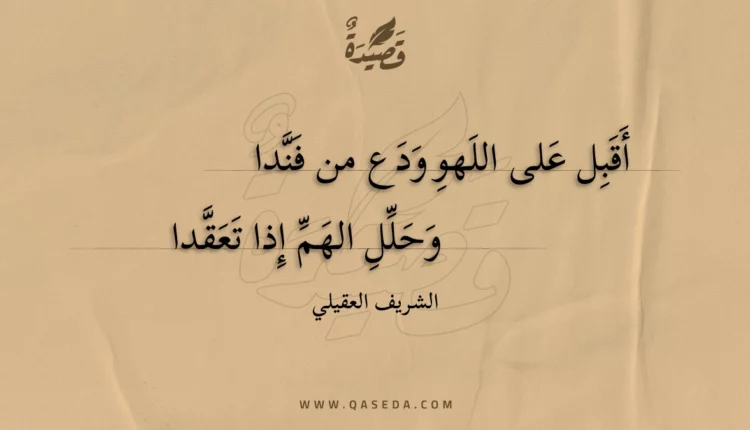 قَصِيْدَةٌ
أَقَبِل عَلى اللَهوِ وَدَع من فَنَّدا
وَحَلِّلِ الهَمِّ إِذا تَعَقَّدا
الشريف العقيلي
WWW.QASEDA.COM